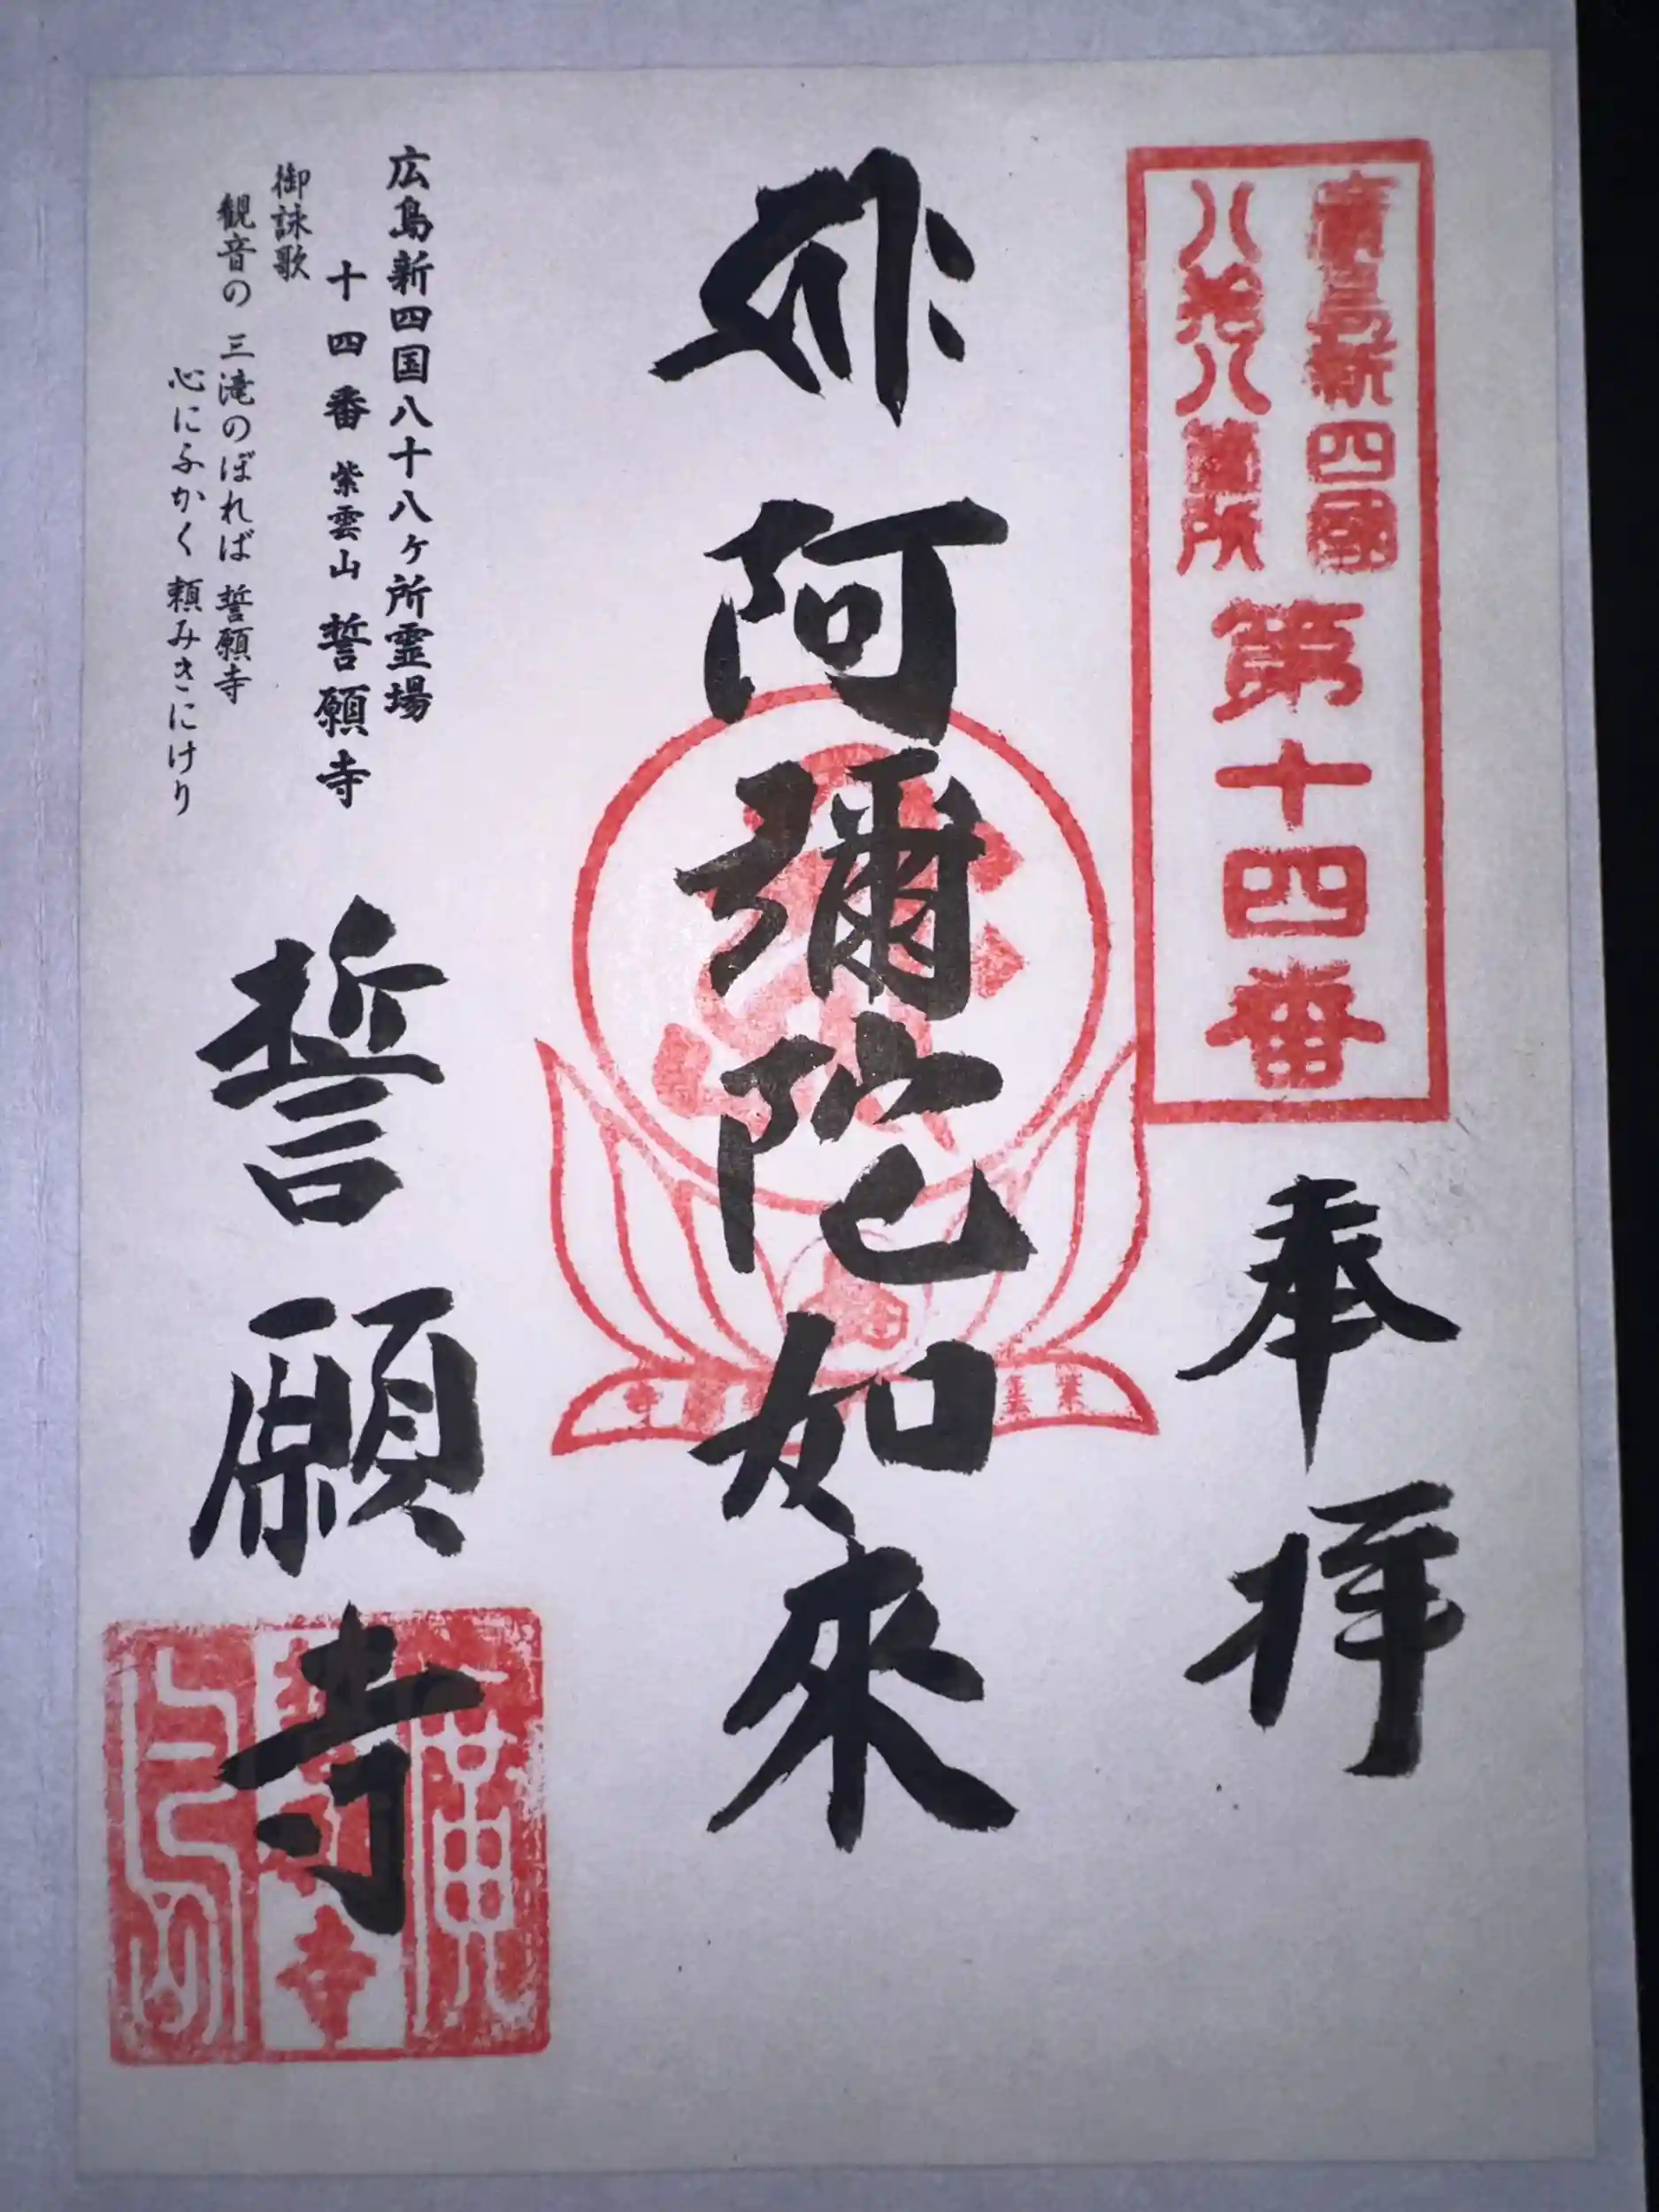 廣島新四國
八拾八箇所
第十四番
奉拝
阿彌陀如來
広島新四国八十八ヶ所霊場
十四番 紫雲山 誓願寺
御詠歌
観音の 三滝のぼれば 誓願寺
心にふかく 頼みきにけり
誓願寺